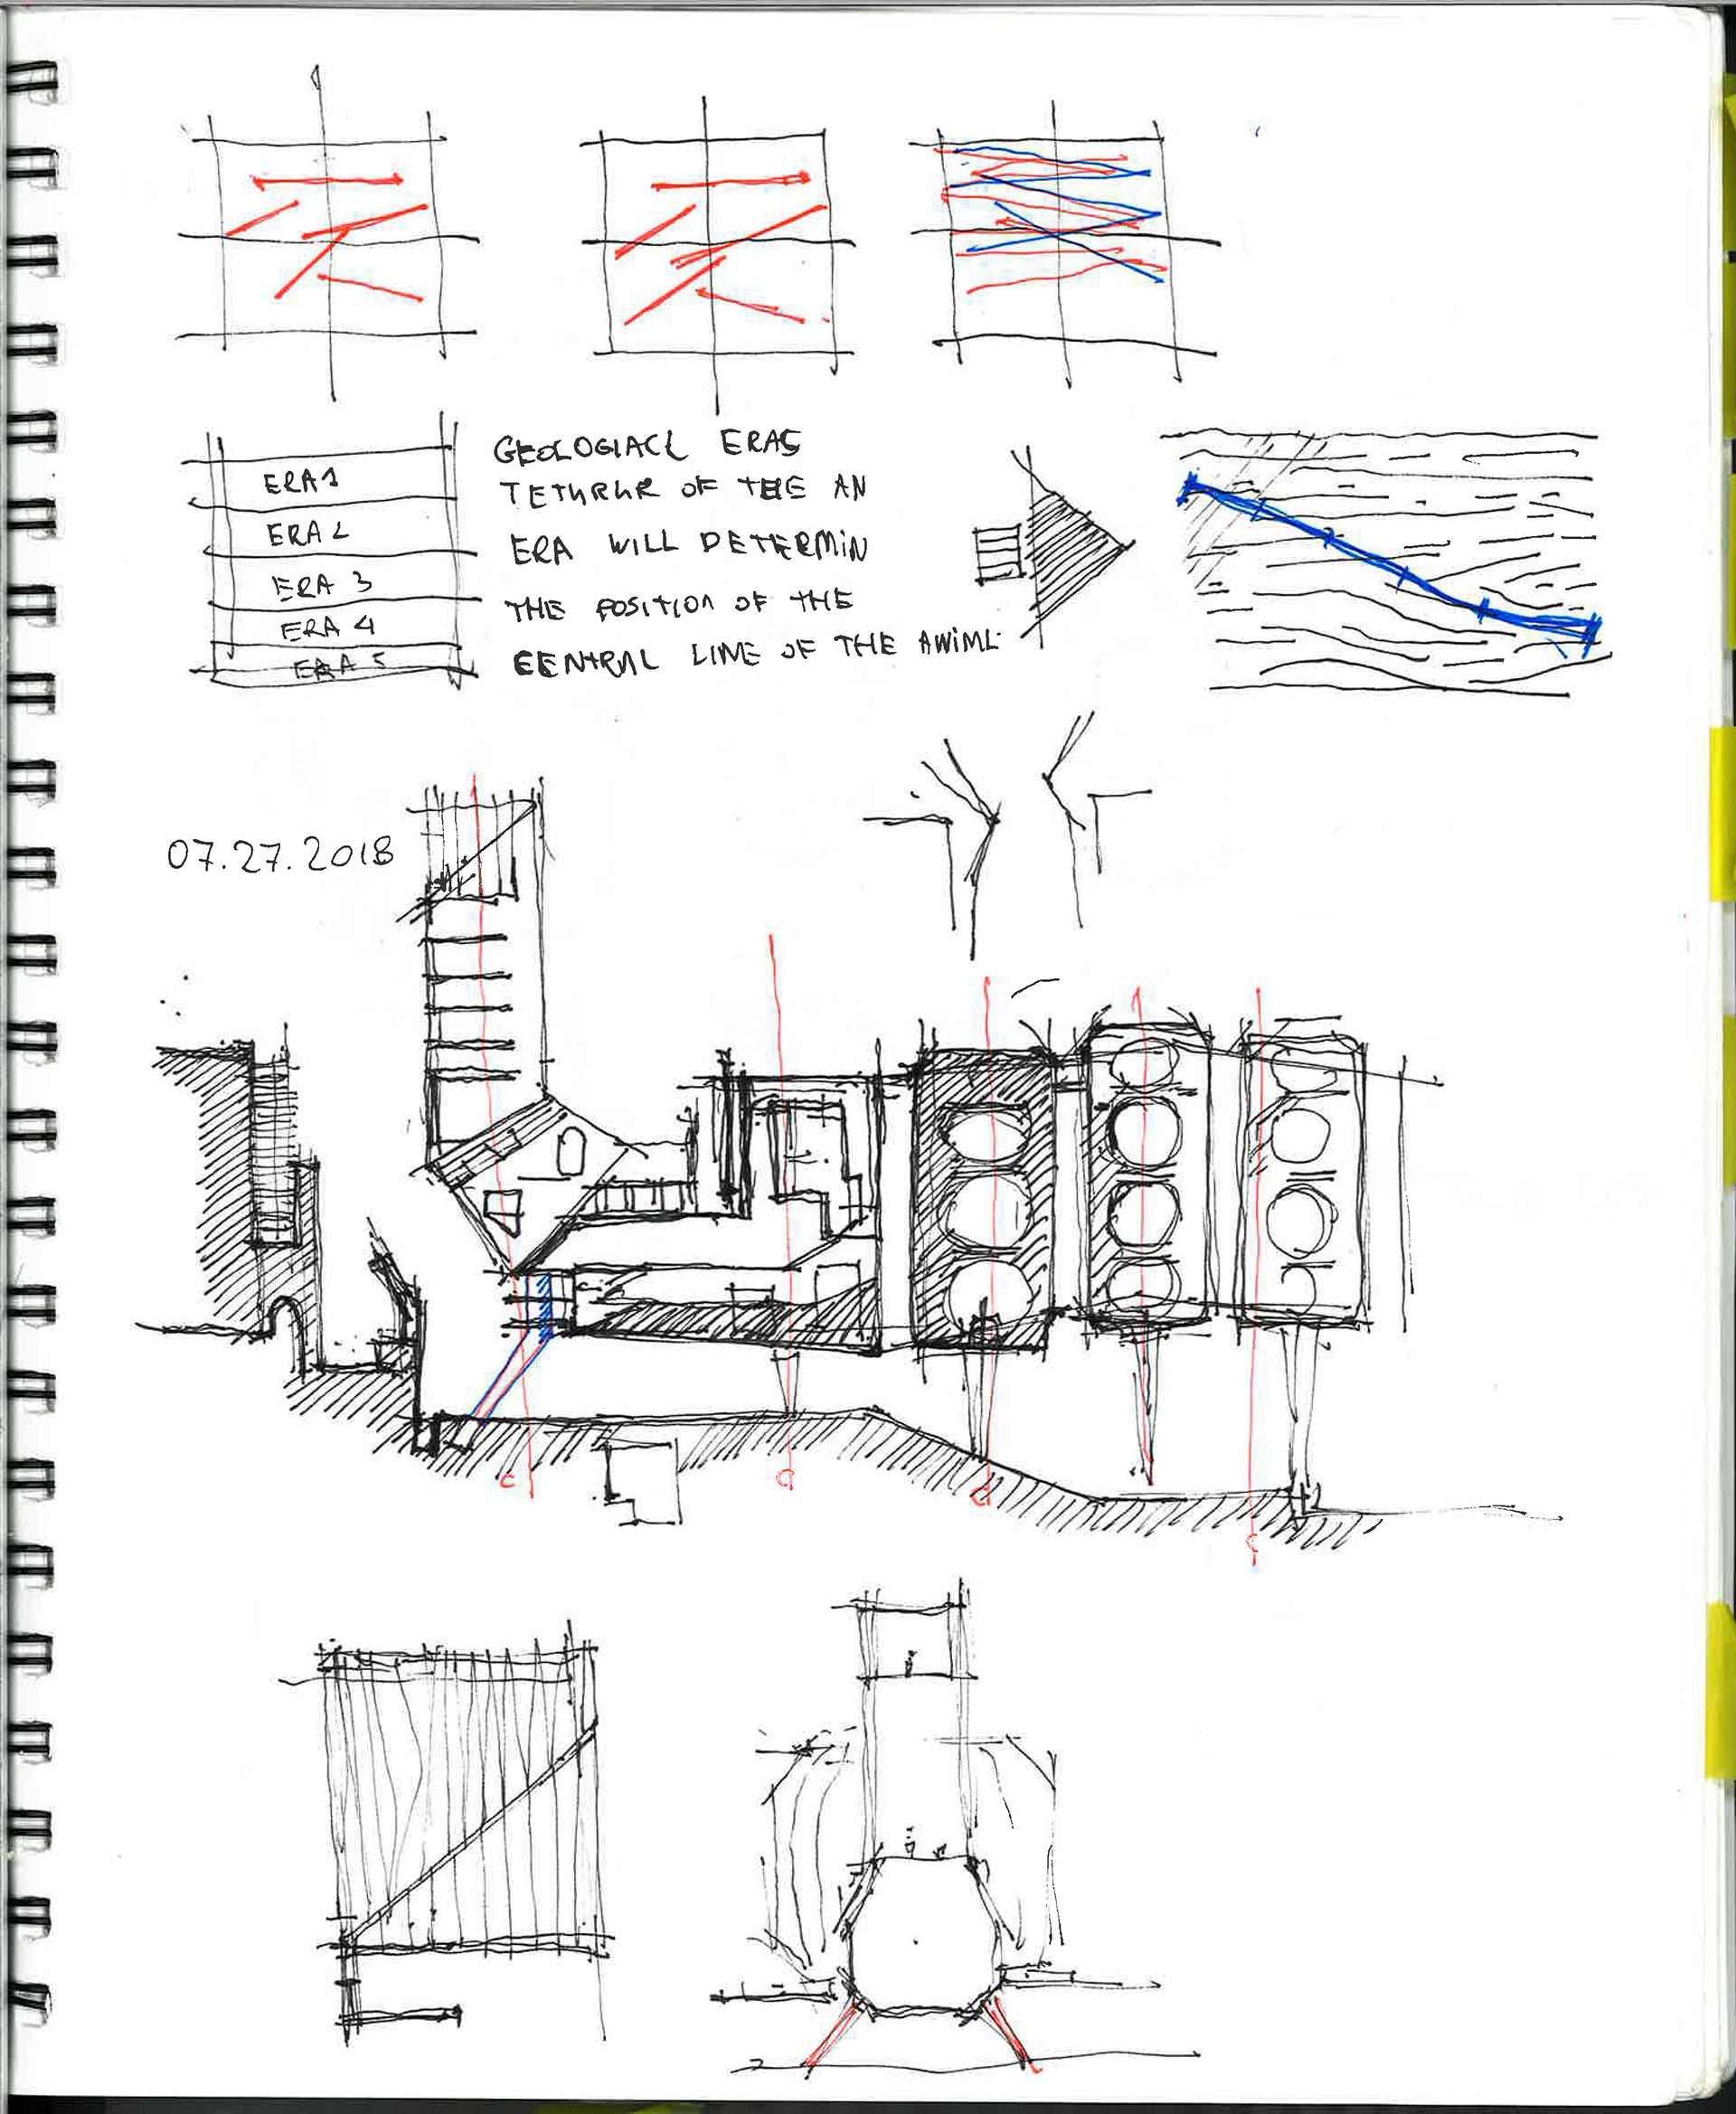 ERA 1
ERA 2
ERA 3
ERA 4
ERA 5
GEOLOGIACL ERAS
TETHRHR OF THE AN
ERA WILL DETERMIN
THE POSITION OF THE
CENTRAL LINE OF THE AWIML
07.27.2018